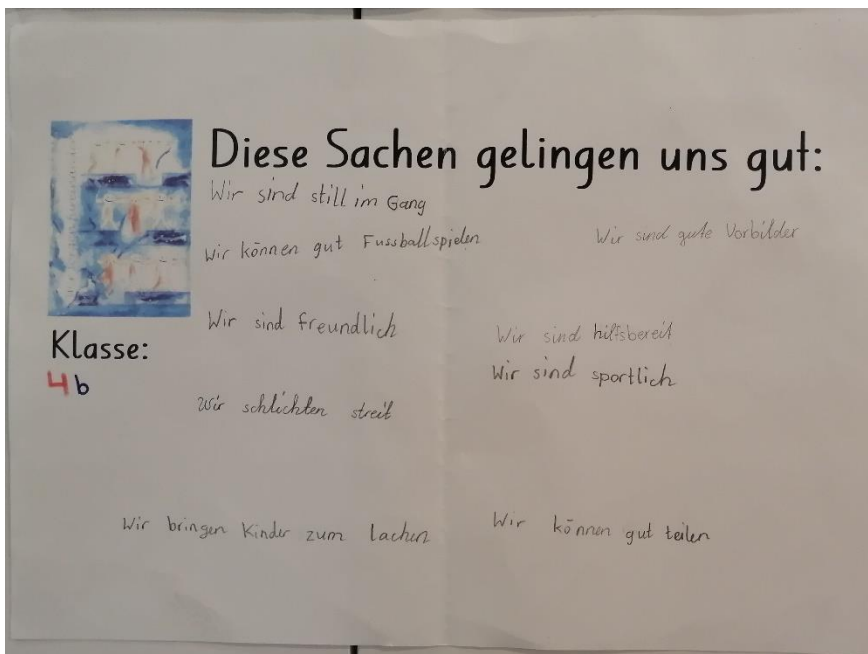 Diese Sachen gelingen uns gut:
Wir sind still im Gang
Wir können gut Fussballspielen
Wir sind gute Vorbilder
Wir sind freundlich
Wir sind hilfsbereit
Klasse:
4b
Wir sind sportlich
Wir schlichten streit
Wir bringen Kinder zum lachen
Wir können gut teilen